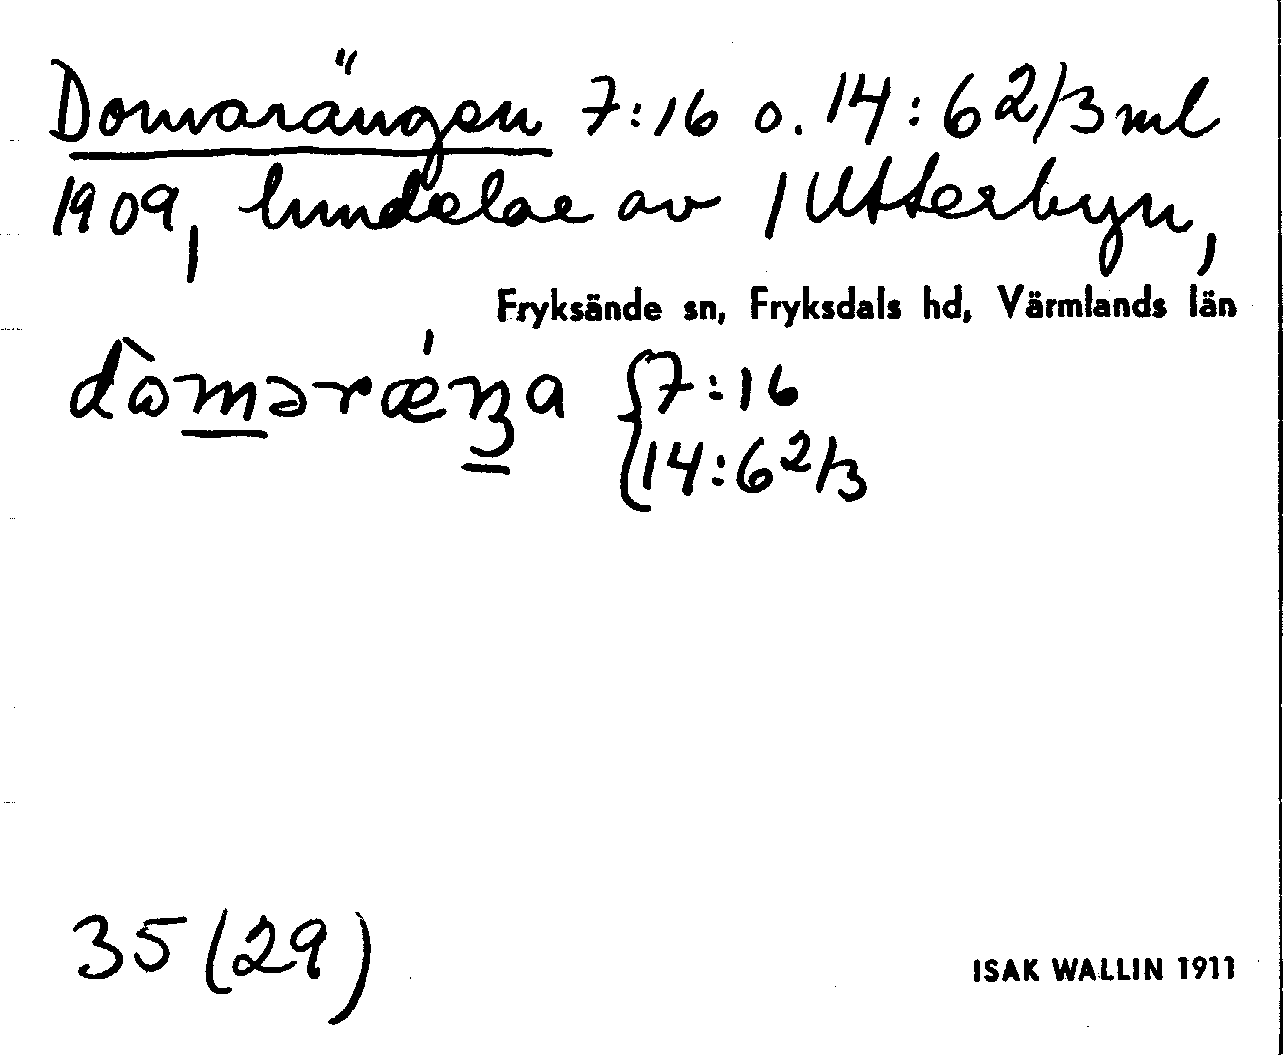 Domarängen 7:16 o. 14:62/3 ml
1909, hmdelae av 1 Utterbyn,
Fryksände sn, Fryksdals hd, Värmlands län
dòmərǽŋa {7:16
14:62/3
35 (29)
ISAK WALLIN 1911